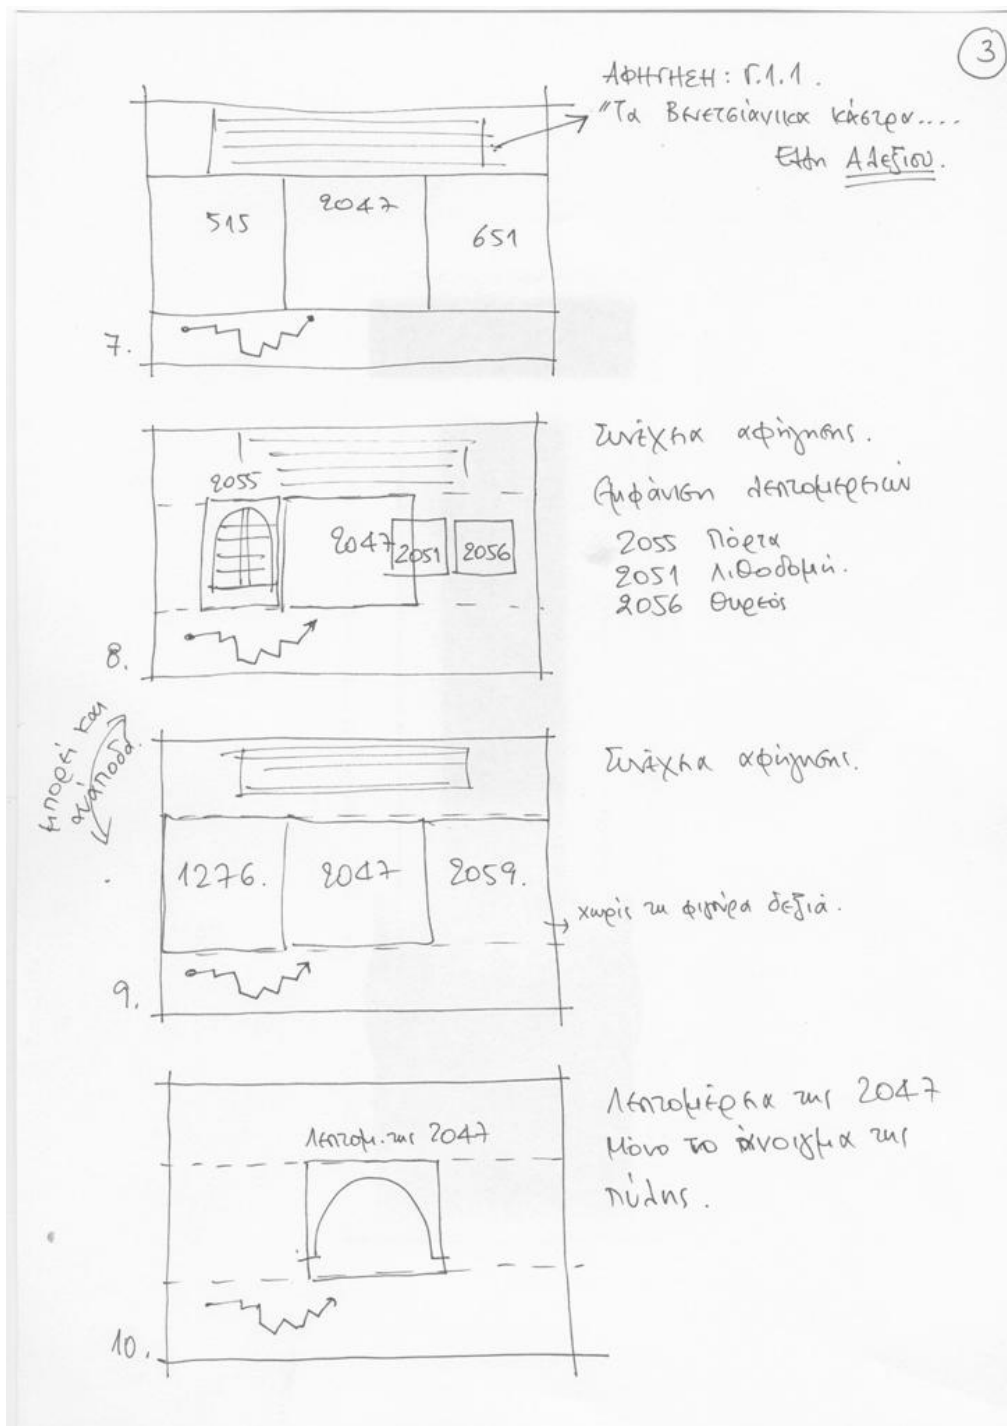 3
ΑΦΗΓΗΣΗ: Γ.1.1.
"Τα Βενετσιάνικα κάστρα....
Έλλη Αλεξίου.
515
2047
651
7.
Συνέχεια αφήγησης.
Εμφάνιση λεπτομερειών
2055 Πόρτα
2051 Λιθοδομή.
2056 Θυρεός
2055
2047
2051
2056
8.
μπορεί και
ανάποδα.
Συνέχεια αφήγησης.
1276.
2047
2059.
→ χωρίς τη φιγούρα δεξιά.
9.
Λεπτομέρεια της 2047
Μόνο το άνοιγμα της
πύλης.
Λεπτομ. της 2047
10.